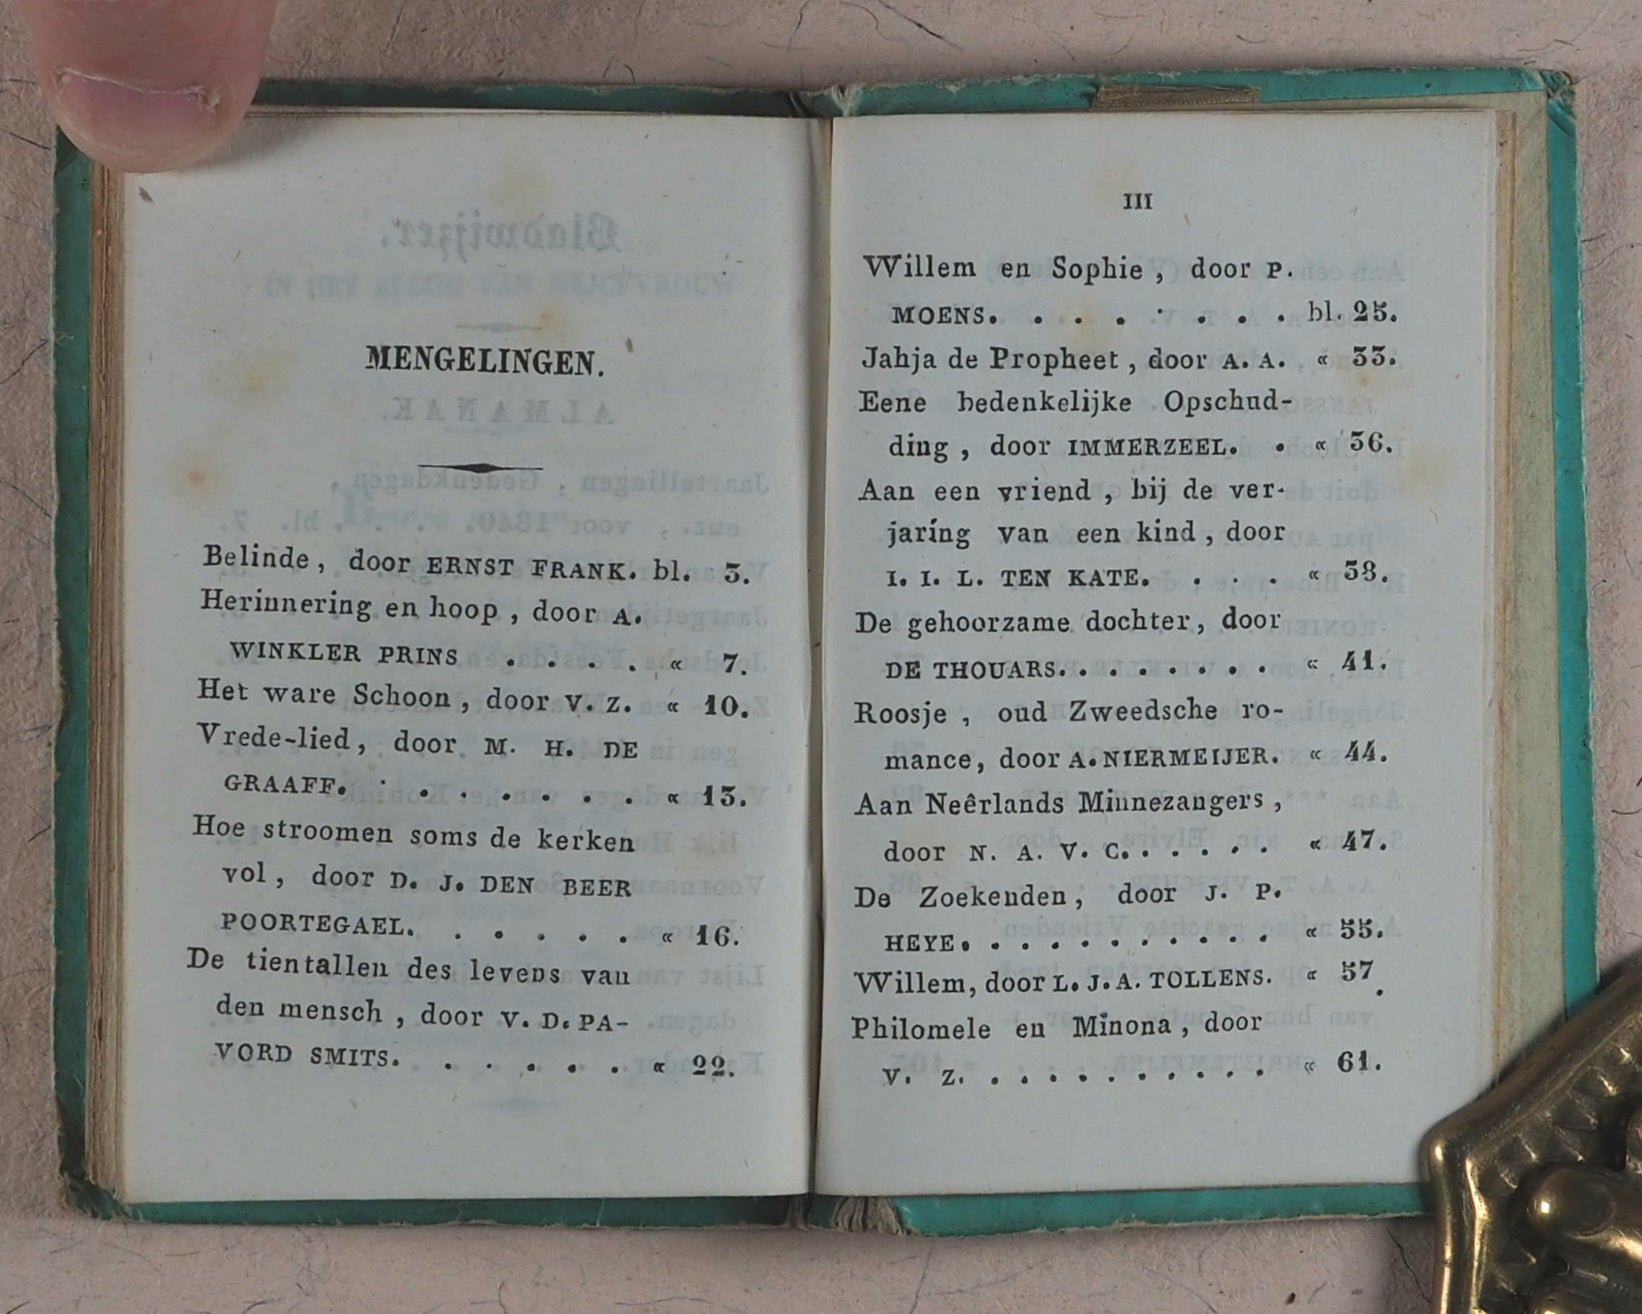 MENGELINGEN.
Belinde, door ERNST FRANK. bl. 3.
Herinnering en hoop, door A.
WINKLER PRINS . . . . « 7.
Het ware Schoon, door V. Z. « 10.
Vrede-lied, door M. H. DE
GRAAFF. . . . . . . . « 13.
Hoe stroomen soms de kerken
vol, door D. J. DEN BEER
POORTEGAEL. . . . . . « 16.
De tientallen des levens van
den mensch, door V. D. PA-
VORD SMITS. . . . . . « 22.
III
Willem en Sophie, door P.
MOENS. . . . . . . . bl. 25.
Jahja de Propheet, door A. A. « 33.
Eene bedenkelijke Opschud-
ding, door IMMERZEEL. . « 36.
Aan een vriend, bij de ver-
jaring van een kind, door
I. I. L. TEN KATE. . . . « 38.
De gehoorzame dochter, door
DE THOUARS. . . . . . . . « 41.
Roosje, oud Zweedsche ro-
mance, door A. NIERMEIJER. « 44.
Aan Neêrlands Minnezangers,
door N. A. V. C. . . . . . « 47.
De Zoekenden, door J. P.
HEYE. . . . . . . . . . . « 55.
Willem, door L. J. A. TOLLENS. « 57.
Philomele en Minona, door
V. Z. . . . . . . . . . . « 61.